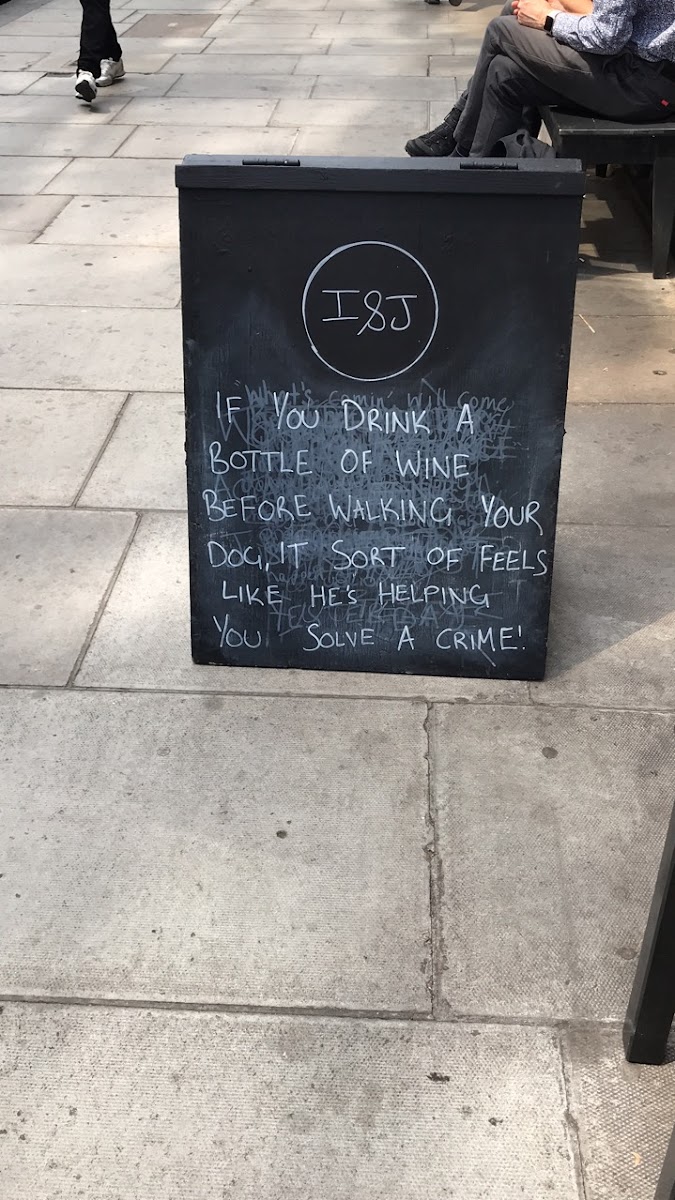 I&J
What's comin' will come
IF YOU DRINK A
BOTTLE OF WINE
BEFORE WALKING YOUR
DOG, IT SORT OF FEELS
LIKE HE'S HELPING
YESTERDAY
YOU SOLVE A CRIME!